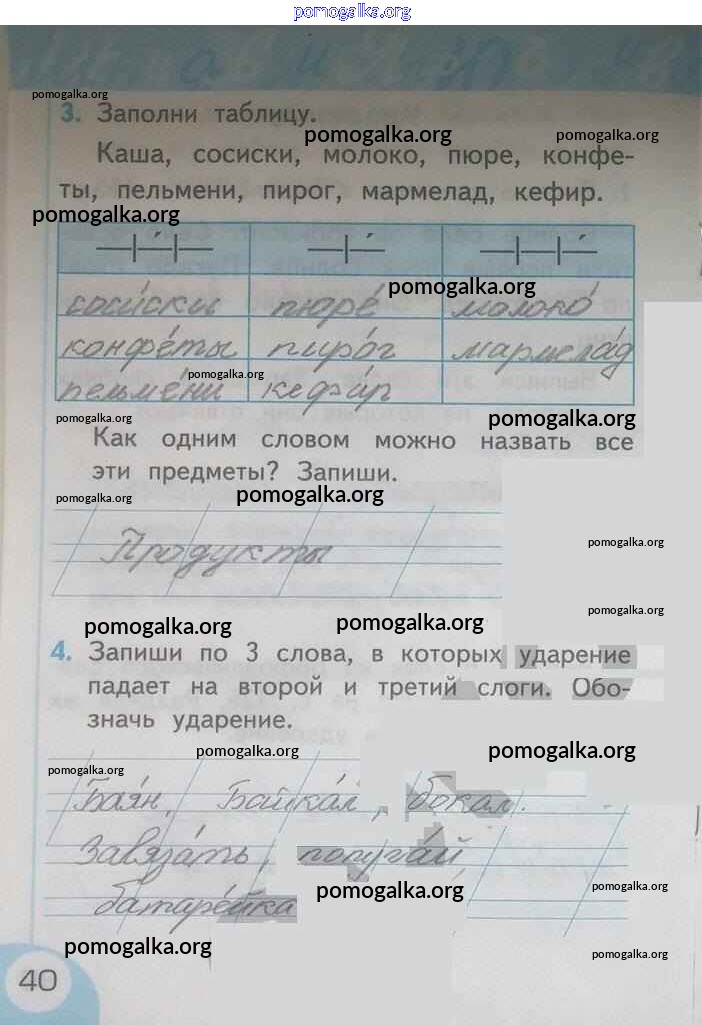 pomogalka.org
pomogalka.org
3. Заполни таблицу.
pomogalka.org pomogalka.org
Каша, сосиски, молоко, пюре, конфе-
ты, пельмени, пирог, мармелад, кефир.
pomogalka.org
pomogalka.org
соси́ски пюре́ молоко́
конфе́ты пиро́г мармела́д
pomogalka.org
пельме́ни кефи́р
pomogalka.org pomogalka.org
Как одним словом можно назвать все
эти предметы? Запиши.
pomogalka.org pomogalka.org
Продукты
pomogalka.org
pomogalka.org
pomogalka.org pomogalka.org
4. Запиши по 3 слова, в которых ударение
падает на второй и третий слоги. Обо-
значь ударение.
pomogalka.org pomogalka.org
pomogalka.org
Бая́н, Байка́л, бока́л.
Завяза́ть, попуга́й
батаре́йка
pomogalka.org pomogalka.org
pomogalka.org pomogalka.org
40